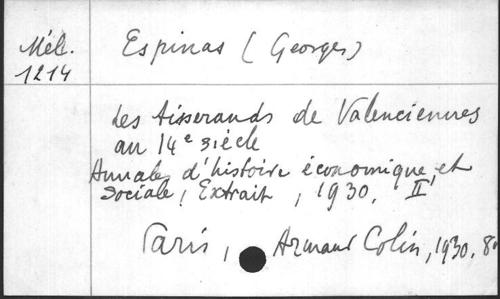 Mél. Espinas (Georges)
1214
Les tisserands de Valenciennes
au 14e siècle
Annales d'histoire économique et
sociale, Extrait, 1930, II,
Paris, Armand Colin, 1930. 8º